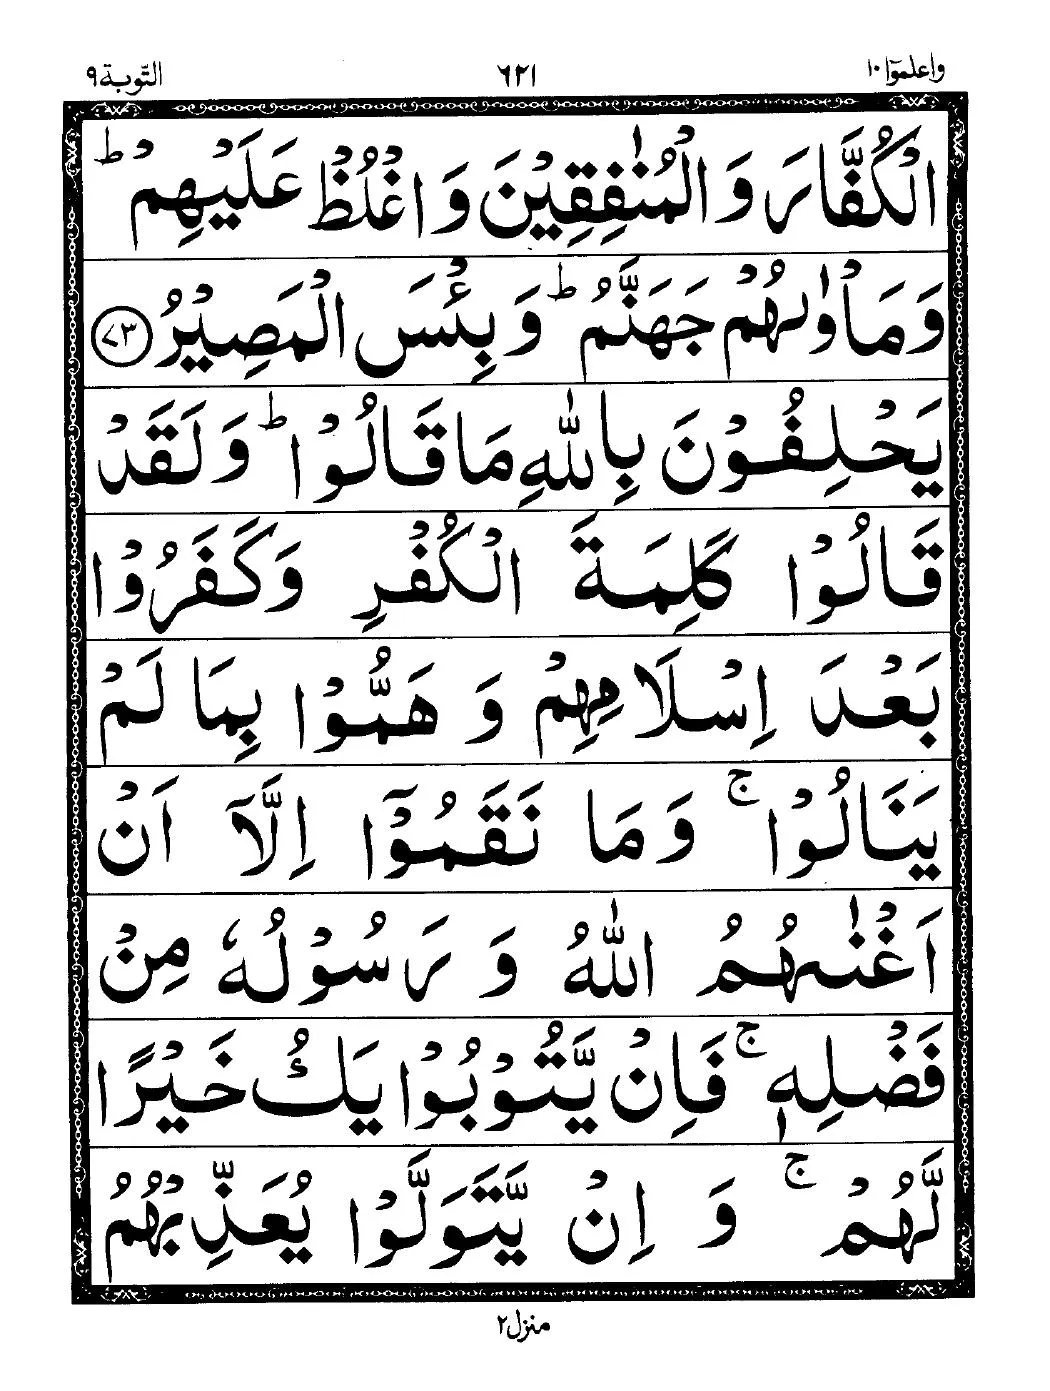 واعلموا ١٠ ٦٢١ التّوبة ٩
الْكُفَّارَ وَالْمُنٰفِقِيْنَ وَاغْلُظْ عَلَيْهِمْ ؕ
وَمَاْوٰىهُمْ جَهَنَّمُ ؕ وَبِئْسَ الْمَصِيْرُ ﴿٧٣﴾
يَحْلِفُوْنَ بِاللّٰهِ مَا قَالُوْا ؕ وَلَقَدْ
قَالُوْا كَلِمَةَ الْكُفْرِ وَكَفَرُوْا
بَعْدَ اِسْلَامِهِمْ وَ هَمُّوْا بِمَا لَمْ
يَنَالُوْا ۚ وَمَا نَقَمُوْۤا اِلَّاۤ اَنْ
اَغْنٰىهُمُ اللّٰهُ وَ رَسُوْلُهٗ مِنْ
فَضْلِهٖ ۚ فَاِنْ يَّتُوْبُوْا يَكُ خَيْرًا
لَّهُمْ ۚ وَ اِنْ يَّتَوَلَّوْا يُعَذِّبْهُمُ
منزل ٢